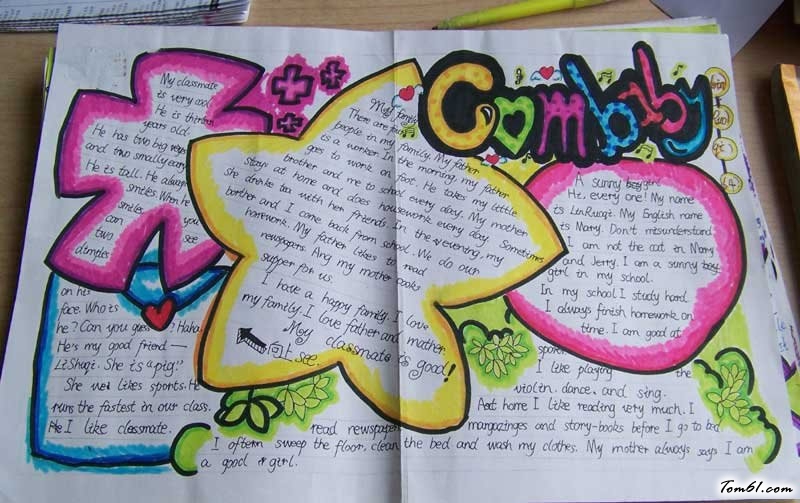 Combaby
My classmate
is very cool
He is thirteen
years old.
He has two big eyes
and two small ears
He is tall. He always
smiles. When he
smiles you
can see
two
dimples
on his
face. Who is
he? Can you guess? Haha
He's my good friend —
LiShaqi. She is a pig!"
She likes sports. He
runs the fastest in our class.
I like classmate.
My family
There are four
people in my family. My father
is a worker. In the morning, my father
goes to work on foot. He takes my little
brother and me to school every day. My mother
stays at home and does housework every day. Sometimes
she drinks tea with her friends. In the evening, my
borther and I come back from school. We do our
homework. My father likes to read
newspapers. Ang my mother cooks
supper for us
I have a happy family. I love
my family. I love father and mother.
My classmate is good!
向上see.
A sunny girl
Hi, every one! My name
is LinRuoqi. My English name
is Marry. Don't misunderstand
I am not the cat in Marry
and Jerry. I am a sunny
girl in my school.
In my school I study hard.
I always finish homework on
time. I am good at
sport
I like playing the
violin. dance. and sing.
Aat home I like reading very much. I
read newspaper margazinges and story-books before I go to bed
I oftern sweep the floor, clean the bed and wash my clothes. My mother always says I am
a good girl.
Tom61.com